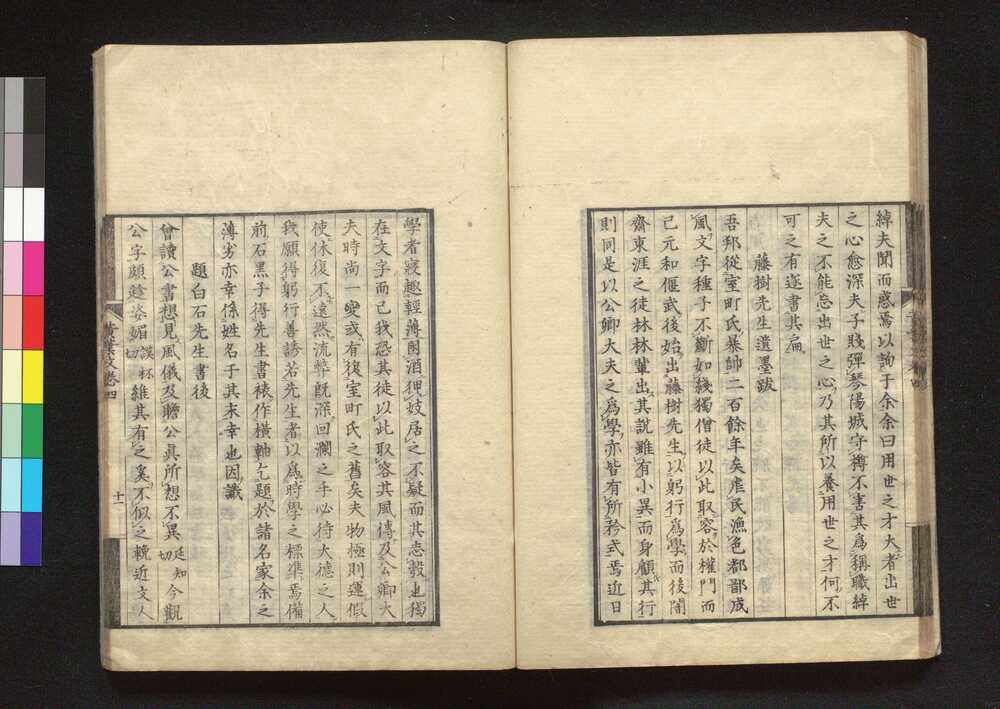 綽夫聞而惑焉以詢于余余曰用世之才大者出世
之心愈深夫子賤彈琴陽城守樽不害其為稱職綽
夫之不能忘出世之心乃其所以養用世之才何不
可之有遂書其後
藤樹先生遺墨跋
吾邦從室町氏暴帥二百餘年矣虐民漁色都鄙成
風文字種子不斷如綫獨僧徒以此取容於權門而
已元和偃武後始出藤樹先生以躬行為學而後闇
齋東涯之徒林林輩出其說雖有小異而身顧其行
則同是以公卿大夫之為學亦皆有所矜式焉近日
學者寢趣輕薄囷酒狎妓居之不疑而其志毅也獨
在文字而已我恐其徒以此取容其風傳及公卿大
夫時尚一變或有復室町氏之舊矣夫物極則運假
使休復不遠然流弊既深回瀾之手必待大德之人
我願得躬行善誘若先生者以為時學之標準焉備
前石黑子得先生書裱作橫軸乞題於諸名家余之
薄劣亦幸係姓名于其末幸也因識
題白石先生書後
曾讀公書想見風儀及瞻公真所想不異 切 知今觀
公字頗趁姿媚 誤 切 維其有之奚不似之輓近文人
黃葉 文卷四
十一